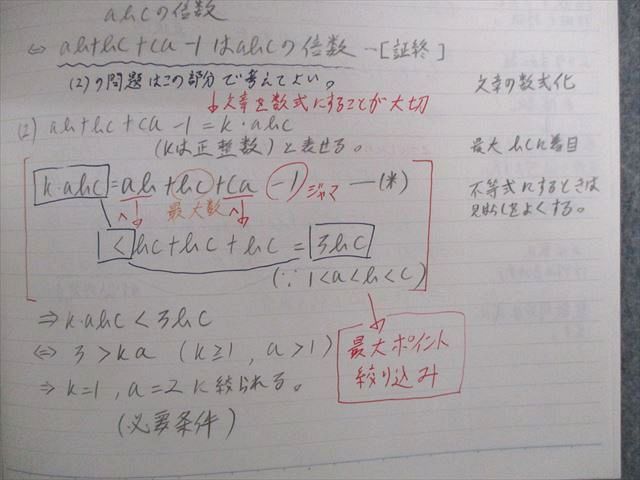 abcの倍数
⇔ ab+bc+ca-1はabcの倍数 …[証終]
(2)の問題はこの部分で考えてよい。
↓文章を数式にすることが大切
文章の数式化
(2) ab+bc+ca-1=k・abc
(kは正整数)と表せる。
最大bcに着目
k・abc=ab+bc+ca-1 ジャマ —(*)
最大数
不等式にするときは
見めしをよくする。
1<bc+bc+bc=3bc
(∵1<a<b<c)
⇒k・abc<3bc
⇔3>ka (k≧1, a>1)
⇒k=1, a=2に絞られる。
(必要条件)
最大ポイント
絞り込み